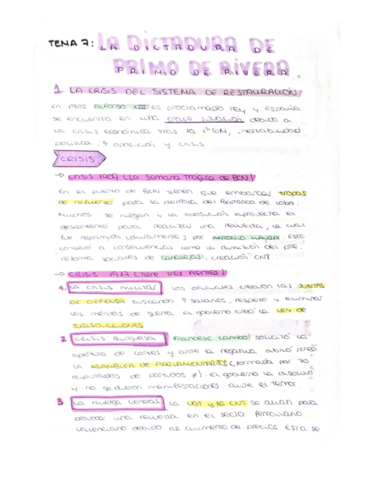 TEMA 7: LA DICTADURA DE
PRIMO DE RIVERA.
1. LA CRISIS DEL SISTEMA DE RESTAURACIÓN
En 1902 ALFONSO XIII es proclamado rey y España
se encuentra en una debido a
la crisis económica tras la 1ª GM, inestabilidad
política, oposición y crisis
CRISIS
CRISIS 1909 (La Semana Trágica de BCN)
En el puerto de BCN tienen que embarcar TROPAS
DE REFUERZO para la derrota del Barranco de Lobo.
Muchos se niegan y la oposición aprovecha el
descontento para realizar una revuelta, la cual
fue reprimida (duramente) por ANTONIO MAURA. Esto
conllevó a consecuencias como la dimisión del
reformas sociales de CANALEJAS, creación CNT.
CRISIS 1917
1 La crisis militar: los oficiales crearon las JUNTAS
DE DEFENSA buscando salarios, respeto y
los méritos de guerra. El gobierno creó la LEY DE
JURISDICCIONES
2 Crisis burguesa: FRANCESC CAMBÓ solicitó la
apertura de cortes y ante la negativa
la ASAMBLEA DE PARLAMENTARIOS (formada por 70
diputados de partidos ≠). El gobierno la disolvió
y no se dieron manifestaciones ante el temor.
3 La huelga general: La UGT y la CNT se alían para
una revuelta en el sector ferroviario
valenciano debido al aumento de precios. Esta se